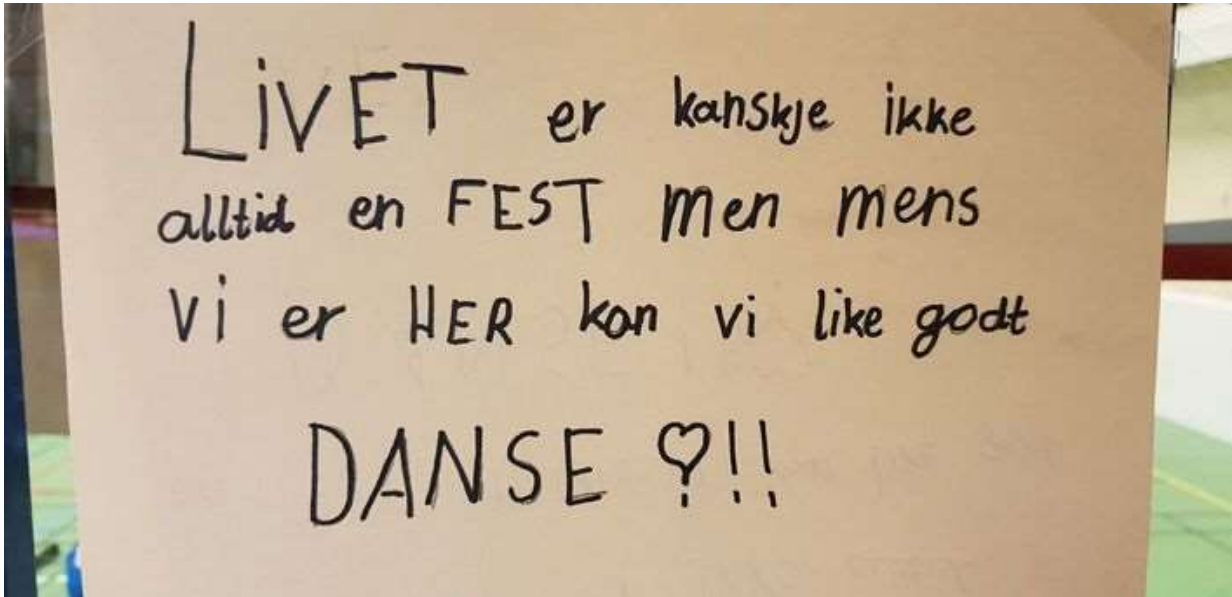 LiVET er kanskje ikke
alltid en FEST men mens
vi er HER kan vi like godt
DANSE ♡!!!